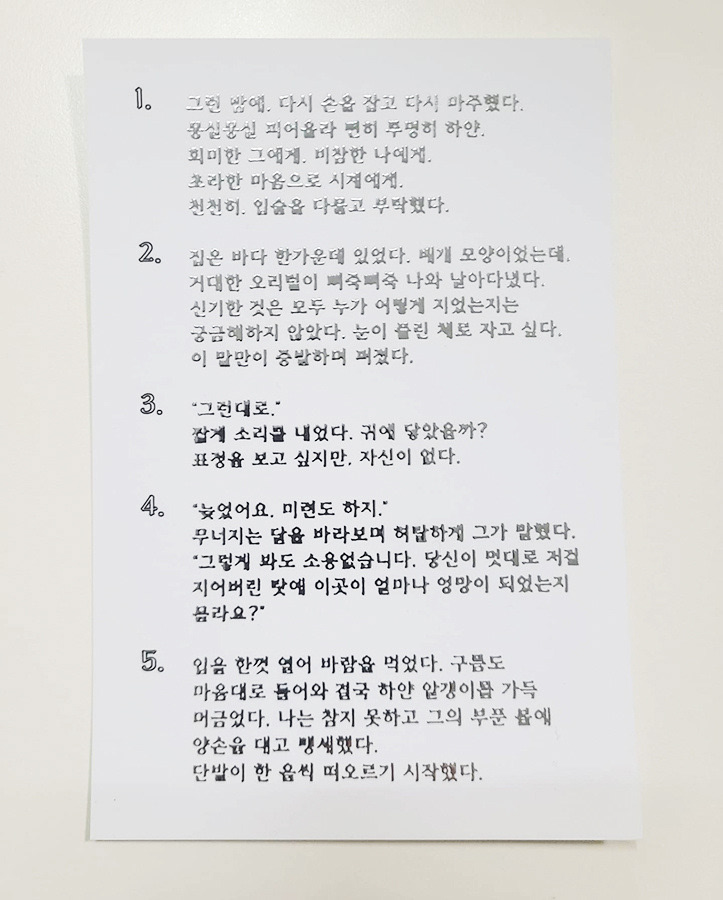 1. 그런 밤에. 다시 손을 잡고 다시 마주했다.
몽실몽실 피어올라 뻔히 투명히 하얀.
희미한 그에게. 비참한 나에게.
초라한 마음으로 시계에게.
천천히. 입술을 다물고 부탁했다.
2. 집은 바다 한가운데 있었다. 베개 모양이었는데.
거대한 오리털이 삐죽삐죽 나와 날아다녔다.
신기한 것은 모두 누가 어떻게 지었는지는
궁금해하지 않았다. 눈이 풀린 체로 자고 싶다.
이 말만이 증발하며 퍼졌다.
3. “그런대로.”
짧게 소리를 내었다. 귀에 닿았을까?
표정을 보고 싶지만, 자신이 없다.
4. “늦었어요. 미련도 하지.”
무너지는 달을 바라보며 허탈하게 그가 말했다.
“그렇게 봐도 소용없습니다. 당신이 멋대로 저걸
지어버린 탓에 이곳이 얼마나 엉망이 되었는지
몰라요?”
5. 입을 한껏 열어 바람을 먹었다. 구름도
마음대로 들어와 결국 하얀 알갱이를 가득
머금었다. 나는 참지 못하고 그의 부푼 볼에
양손을 대고 맹세했다.
단발이 한 올씩 떠오르기 시작했다.